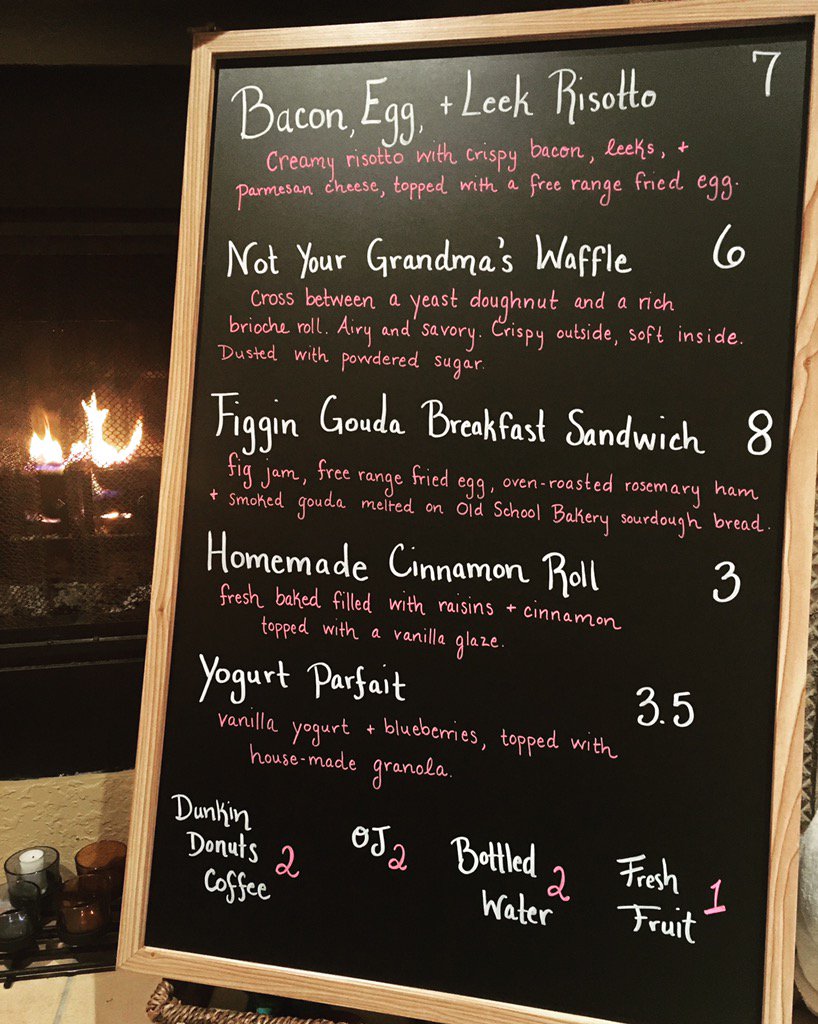 Bacon, Egg, + Leek Risotto 7
Creamy risotto with crispy bacon, leeks, +
parmesan cheese, topped with a free range fried egg.
Not Your Grandma's Waffle 6
Cross between a yeast doughnut and a rich
brioche roll. Airy and savory. Crispy outside, soft inside.
Dusted with powdered sugar.
Figgin Gouda Breakfast Sandwich 8
fig jam, free range fried egg, oven-roasted rosemary ham
+ smoked gouda melted on Old School Bakery sourdough bread.
Homemade Cinnamon Roll 3
fresh baked filled with raisins + cinnamon
topped with a vanilla glaze.
Yogurt Parfait 3.5
vanilla yogurt + blueberries, topped with
house-made granola.
Dunkin
Donuts 2
Coffee
OJ 2
Bottled 2
Water
Fresh 1
Fruit